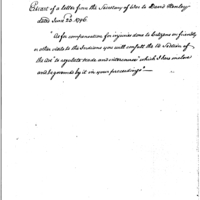 Extract of a letter from the Secretary of War to David Henley
dated June 22. 1796.
"As for compensation for injuries done to Citizens or friendly
or other clubs to the Indians you will consult the 14 Section of
the act "to regulate trade and intercourse" which I here enclose
and be governed by it in your proceedings"—